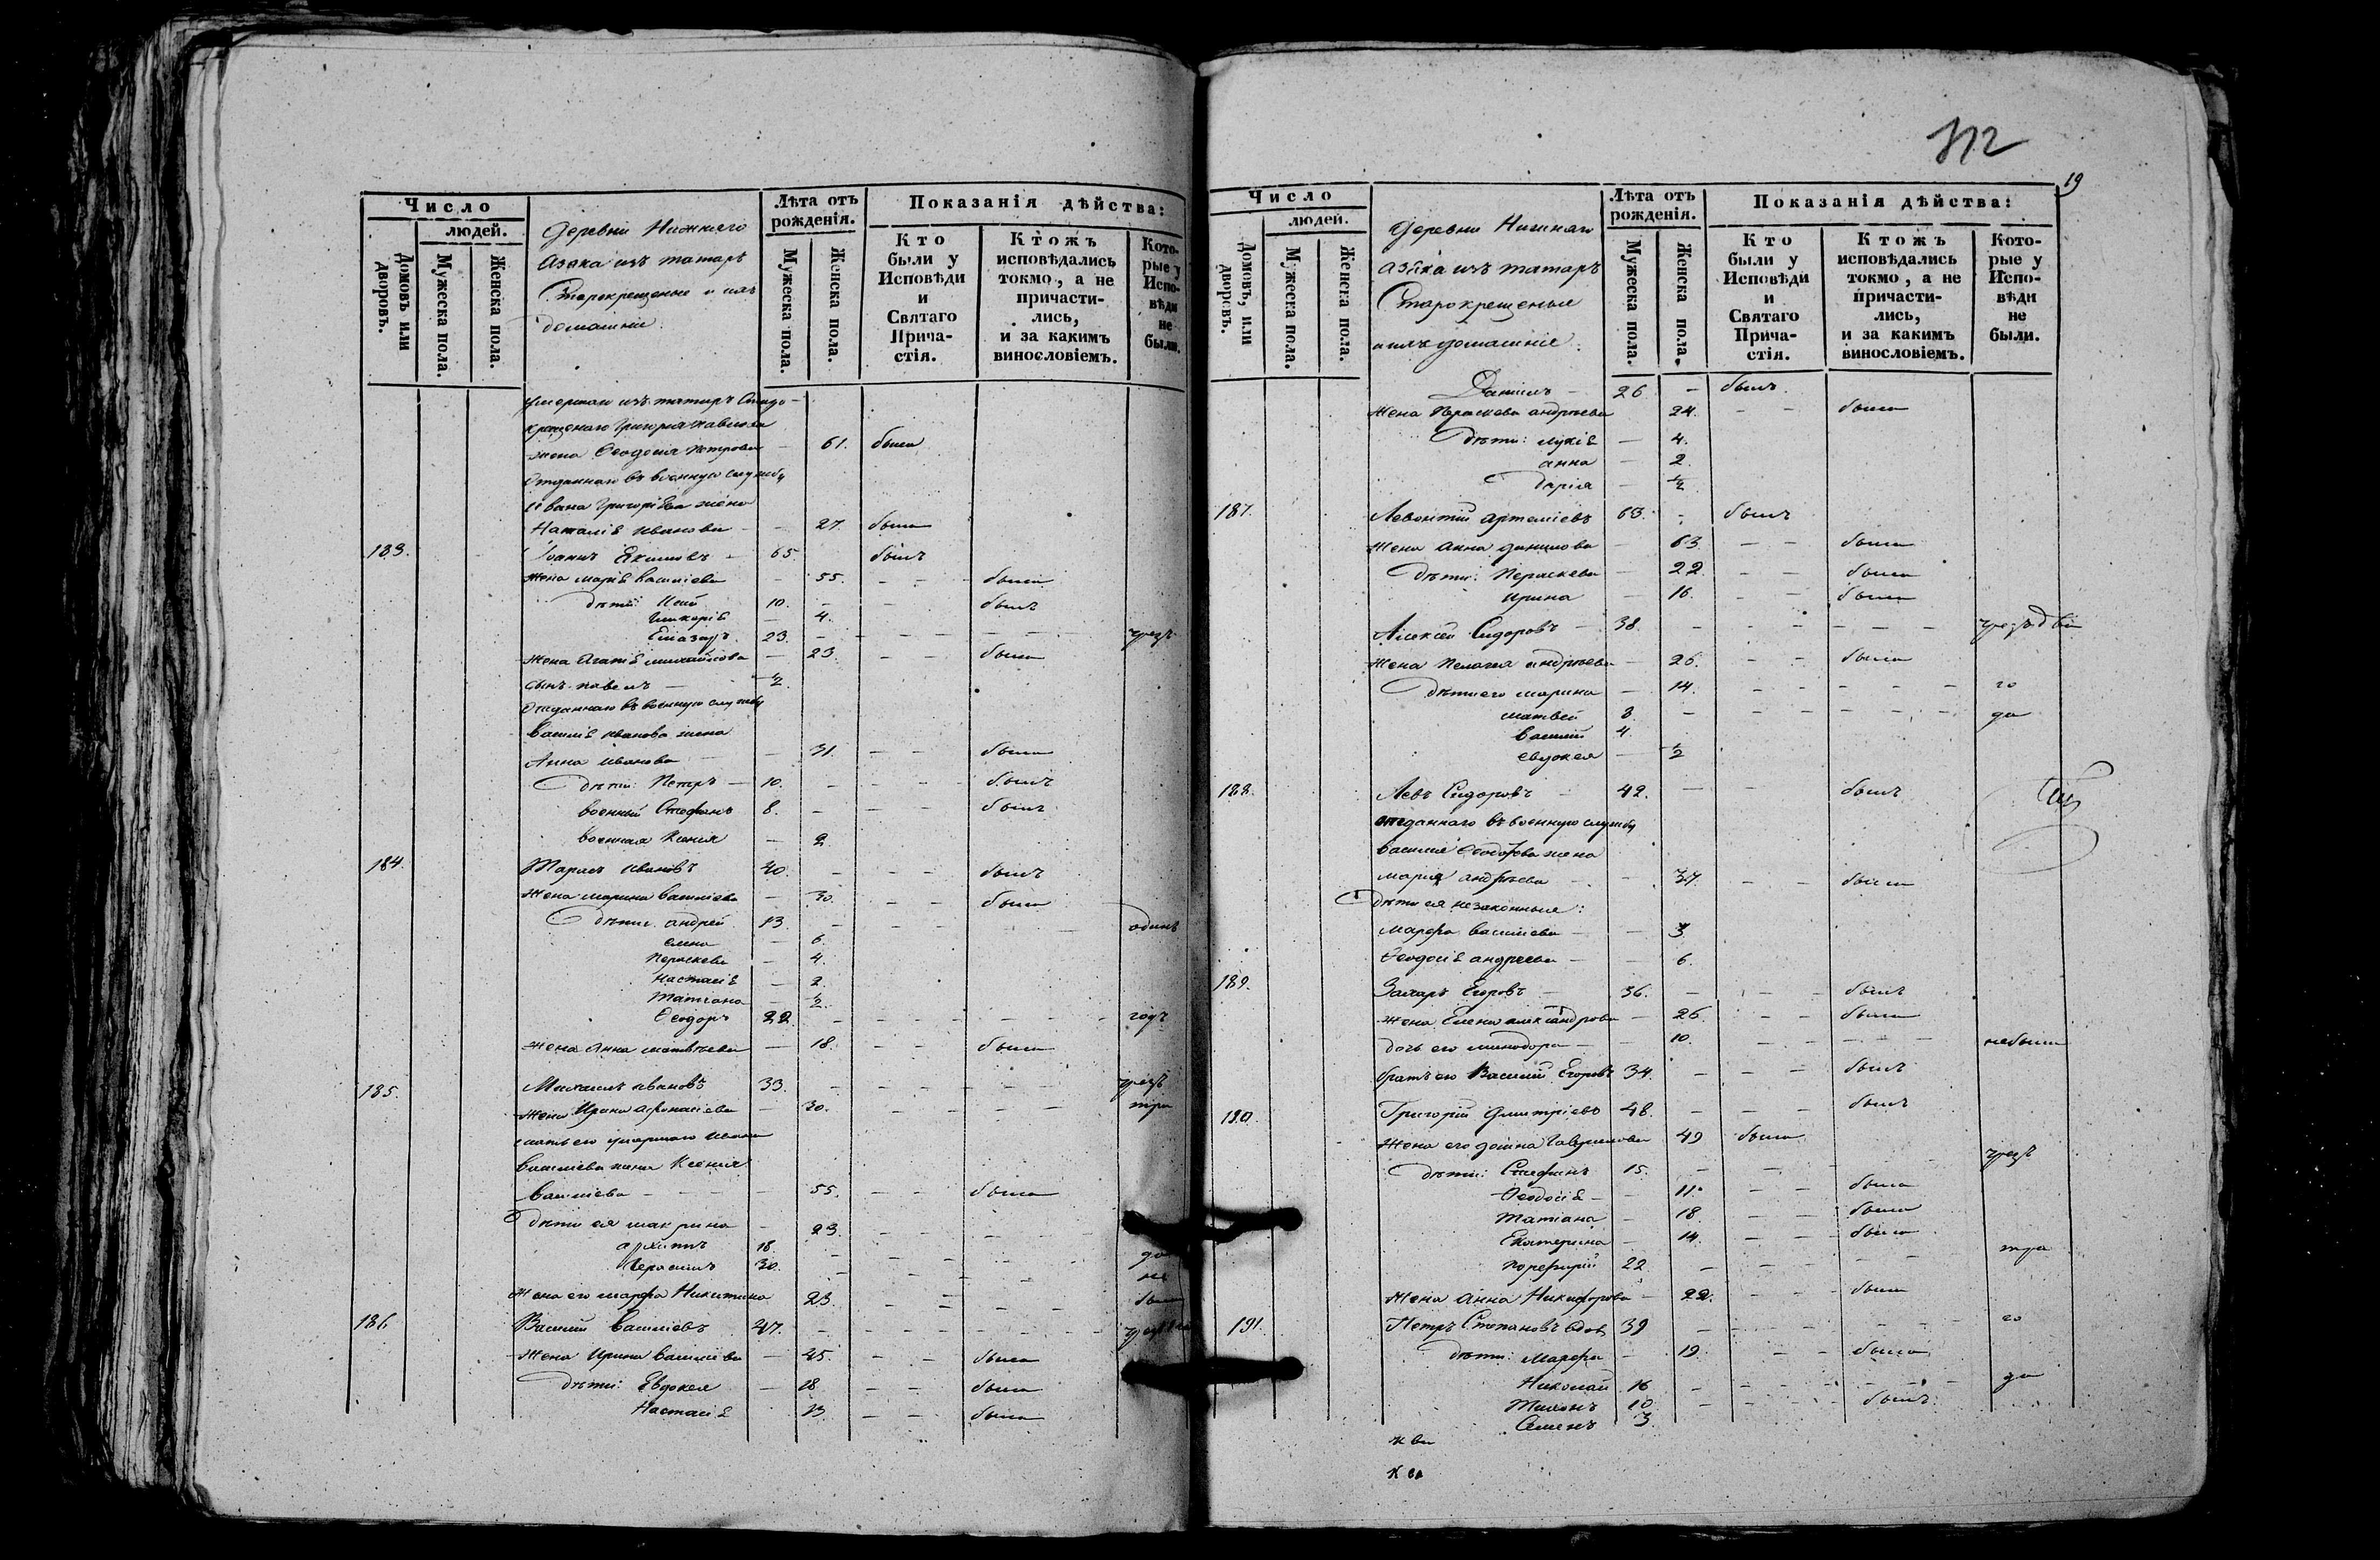 Число
людей.
Домовъ или дворовъ.
Мужеска пола.
Женска пола.
Деревни Нижняго
Азяка изъ татаръ
Старокрещеные и ихъ
домашніе.
Лѣта отъ рожденія.
Мужеска пола.
Женска пола.
Показанія дѣйства:
Кто были у Исповѣди и Святаго Прича-стія.
Ктожъ исповѣдались токмо, а не причасти-лись, и за какимъ винословіемъ.
Кото-рые у Испо-вѣди не были.
умершаго изъ татаръ
крещенаго Григорія Павлова
жена Ѳеодосія Петрова — 61. была
Отданнаго въ военную службу
Ивана Григоріева жена
Наталія Иванова — 27. была
183. Іоаннъ Екимовъ — 65 былъ
жена Марія Василіева — 55. — — была
дѣти: 10. — — былъ
Гликерія — 4.
Елазаръ 23. — — — — чрезъ
жена Агапія Михайлова — 23. — — была
сынъ Павелъ — ½
Отданнаго въ военную службу
Василія Иванова жена
Анна Иванова — 31. — — была
Дѣти: Петръ — 10. — — — былъ
военный Стефанъ 8. — — — былъ
военная Ксенія — 2
184. Тарасъ Ивановъ 40. — — — былъ
жена Марина Василіева — 30. — — была
дѣти: Андрей 13. — — — — одинъ
Елена — 6.
Параскева — 4.
Настасія — 2.
Татіана — ½.
Ѳеодоръ 22. — — — — годъ
жена Анна Матвѣева — 18. — — была
185. Михаилъ Ивановъ 33. — — — — чрезъ
жена Ирина Афонасіева — 30. — — — — три
умершаго
Василіева жена Ксенія
Василіева — — — 55. — — была
дѣти ея Макрина — 23. — — —
Архипъ 18. — — — — го
Герасимъ 30. — — — — не
жена его Марфа Никитина 23. — — — — были
186. Василій Василіевъ 47. — — — — чрезъ
жена Ирина Василіева — 45. — — была
дѣти: Евдокея — 18 — — была
Настасія 13 — — была
312
19
Число
людей.
Домовъ, или дворовъ.
Мужеска пола.
Женска пола.
Деревни Нижняго
Азяка изъ татаръ
Старокрещеные
и ихъ домашніе:
Лѣта отъ рожденія.
Мужеска пола.
Женска пола.
Показанія дѣйства:
Кто были у Исповѣди и Святаго Прича-стія.
Ктожъ исповѣдались токмо, а не причасти-лись, и за какимъ винословіемъ.
Кото-рые у Испо-вѣди не были.
Даніилъ — 26 — былъ.
жена Параскева Андреева 24. — — была
дѣти: Лукія — 4.
Анна — 2.
Дарія — ½
187. Леонтій Артеміевъ 63. — былъ
жена Анна Данилова — 63. — — была
дѣти: Параскева — 22 — — была
Ирина — 16. — — была
Алексѣй Сидоровъ — 38. — — — — чрезъ дві
жена Пелагея Андреева — 26. — — была
дѣти его Марина — 14. — — — — го
Матвей 8. — — — — — да
Василій 4.
Евдокея — ½
188. Левъ Сидоровъ — 42. — — былъ
отданнаго въ военную службу
Василія Ѳеодорова жена
Марія Андреева — — 34. — — была
дѣти ея незаконныя:
Марфа Василіева — — 3
Ѳеодосія Андреева — — 6.
189. Захаръ Егоровъ — 36. — — — былъ
жена Елена Александрова — 26. — — была
дочь его Минодора — — 10. — — — — небыли
братъ его Василій Егоровъ 34. — — — былъ
190. Григорій Дмитріевъ 48. — — — былъ
жена его Домна Гавріилова 49 была
дѣти: Стефанъ 15. — — — чрезъ
Ѳеодосія — — 11. — — была
Татіана — 18. — — была
Екатерина — 14. — — была
Порфирій 22 — — — — три
жена Анна Никифорова — 22. — — была
191. Петръ Степановъ вдов. 39 — — — — го
дѣти: Марфа — 19. — — была
Николай 16 — — — — да
Тихонъ 10. — — — былъ
Семенъ 3.